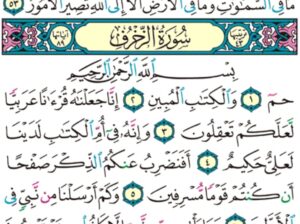 مَا فِي السَّمَٰوَٰتِ وَمَا فِي الْأَرْضِ أَلَا إِلَى اللَّهِ تَصِيرُ الْأُمُورُ ٥٣
سُورَةُ الزُّخْرُفِ
بِسْمِ اللَّهِ الرَّحْمَٰنِ الرَّحِيمِ
حمٓ ١ وَالْكِتَٰبِ الْمُبِينِ ٢ إِنَّا جَعَلْنَٰهُ قُرْءَٰنًا عَرَبِيًّا
لَّعَلَّكُمْ تَعْقِلُونَ ٣ وَإِنَّهُ فِي أُمِّ الْكِتَٰبِ لَدَيْنَا
لَعَلِيٌّ حَكِيمٌ ٤ أَفَنَضْرِبُ عَنكُمُ الذِّكْرَ صَفْحًا
أَن كُنتُمْ قَوْمًا مُّسْرِفِينَ ٥ وَكَمْ أَرْسَلْنَا مِن نَّبِيٍّ فِي